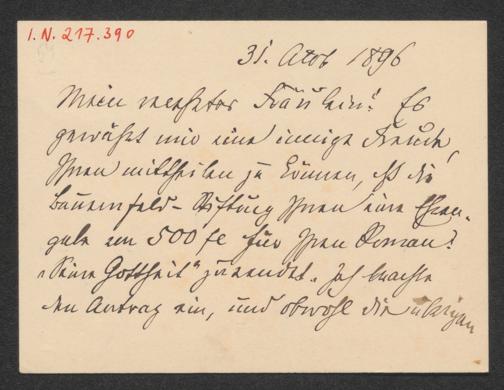 I.N. 217.390
31. Octob 1896
Mein verehrtes Fräulein! Es
gewährt mir eine innige Freude,
Ihnen mittheilen zu können, daß die
Bauernfeld-Stiftung Ihnen eine Ehren-
gabe von 500 fl für Ihren Roman
"Seine Gottheit" zuwendet. Ich brachte
den Antrag ein, und obwohl die übrigen